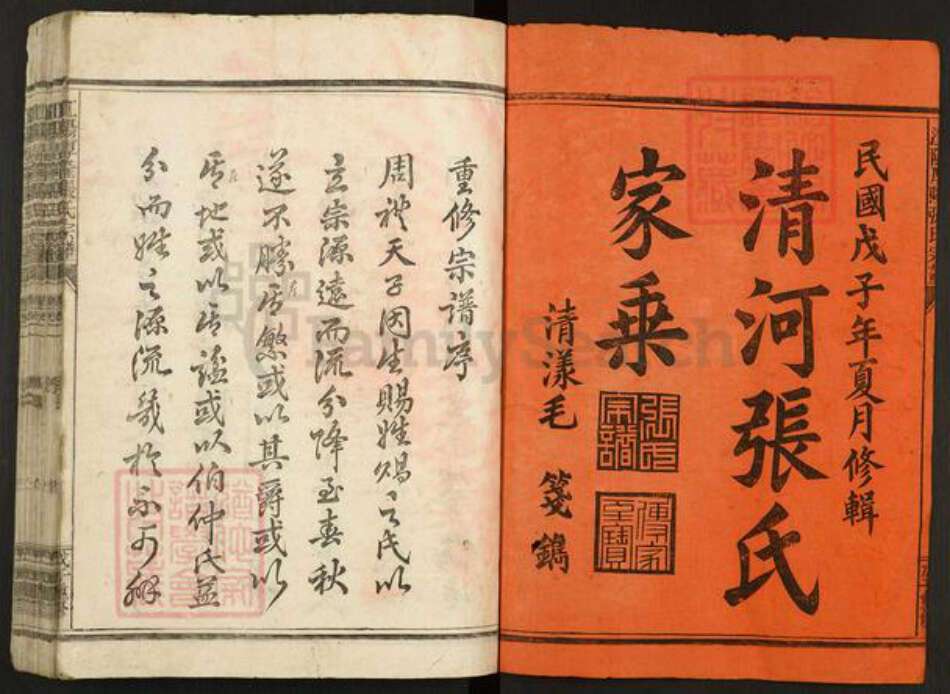 民國戊子年夏月修輯
清河張氏
家乗
清漾毛 箋鐫
張氏宗譜
傳家至寶
重修宗譜序
周礼天子因生賜姓賜之氏以
立宗源遠而流分降至春秋
遂不勝其繁或以其爵或以
地或以諡或以伯仲氏益
分而姓之源流幾於不可解
FamilySearch